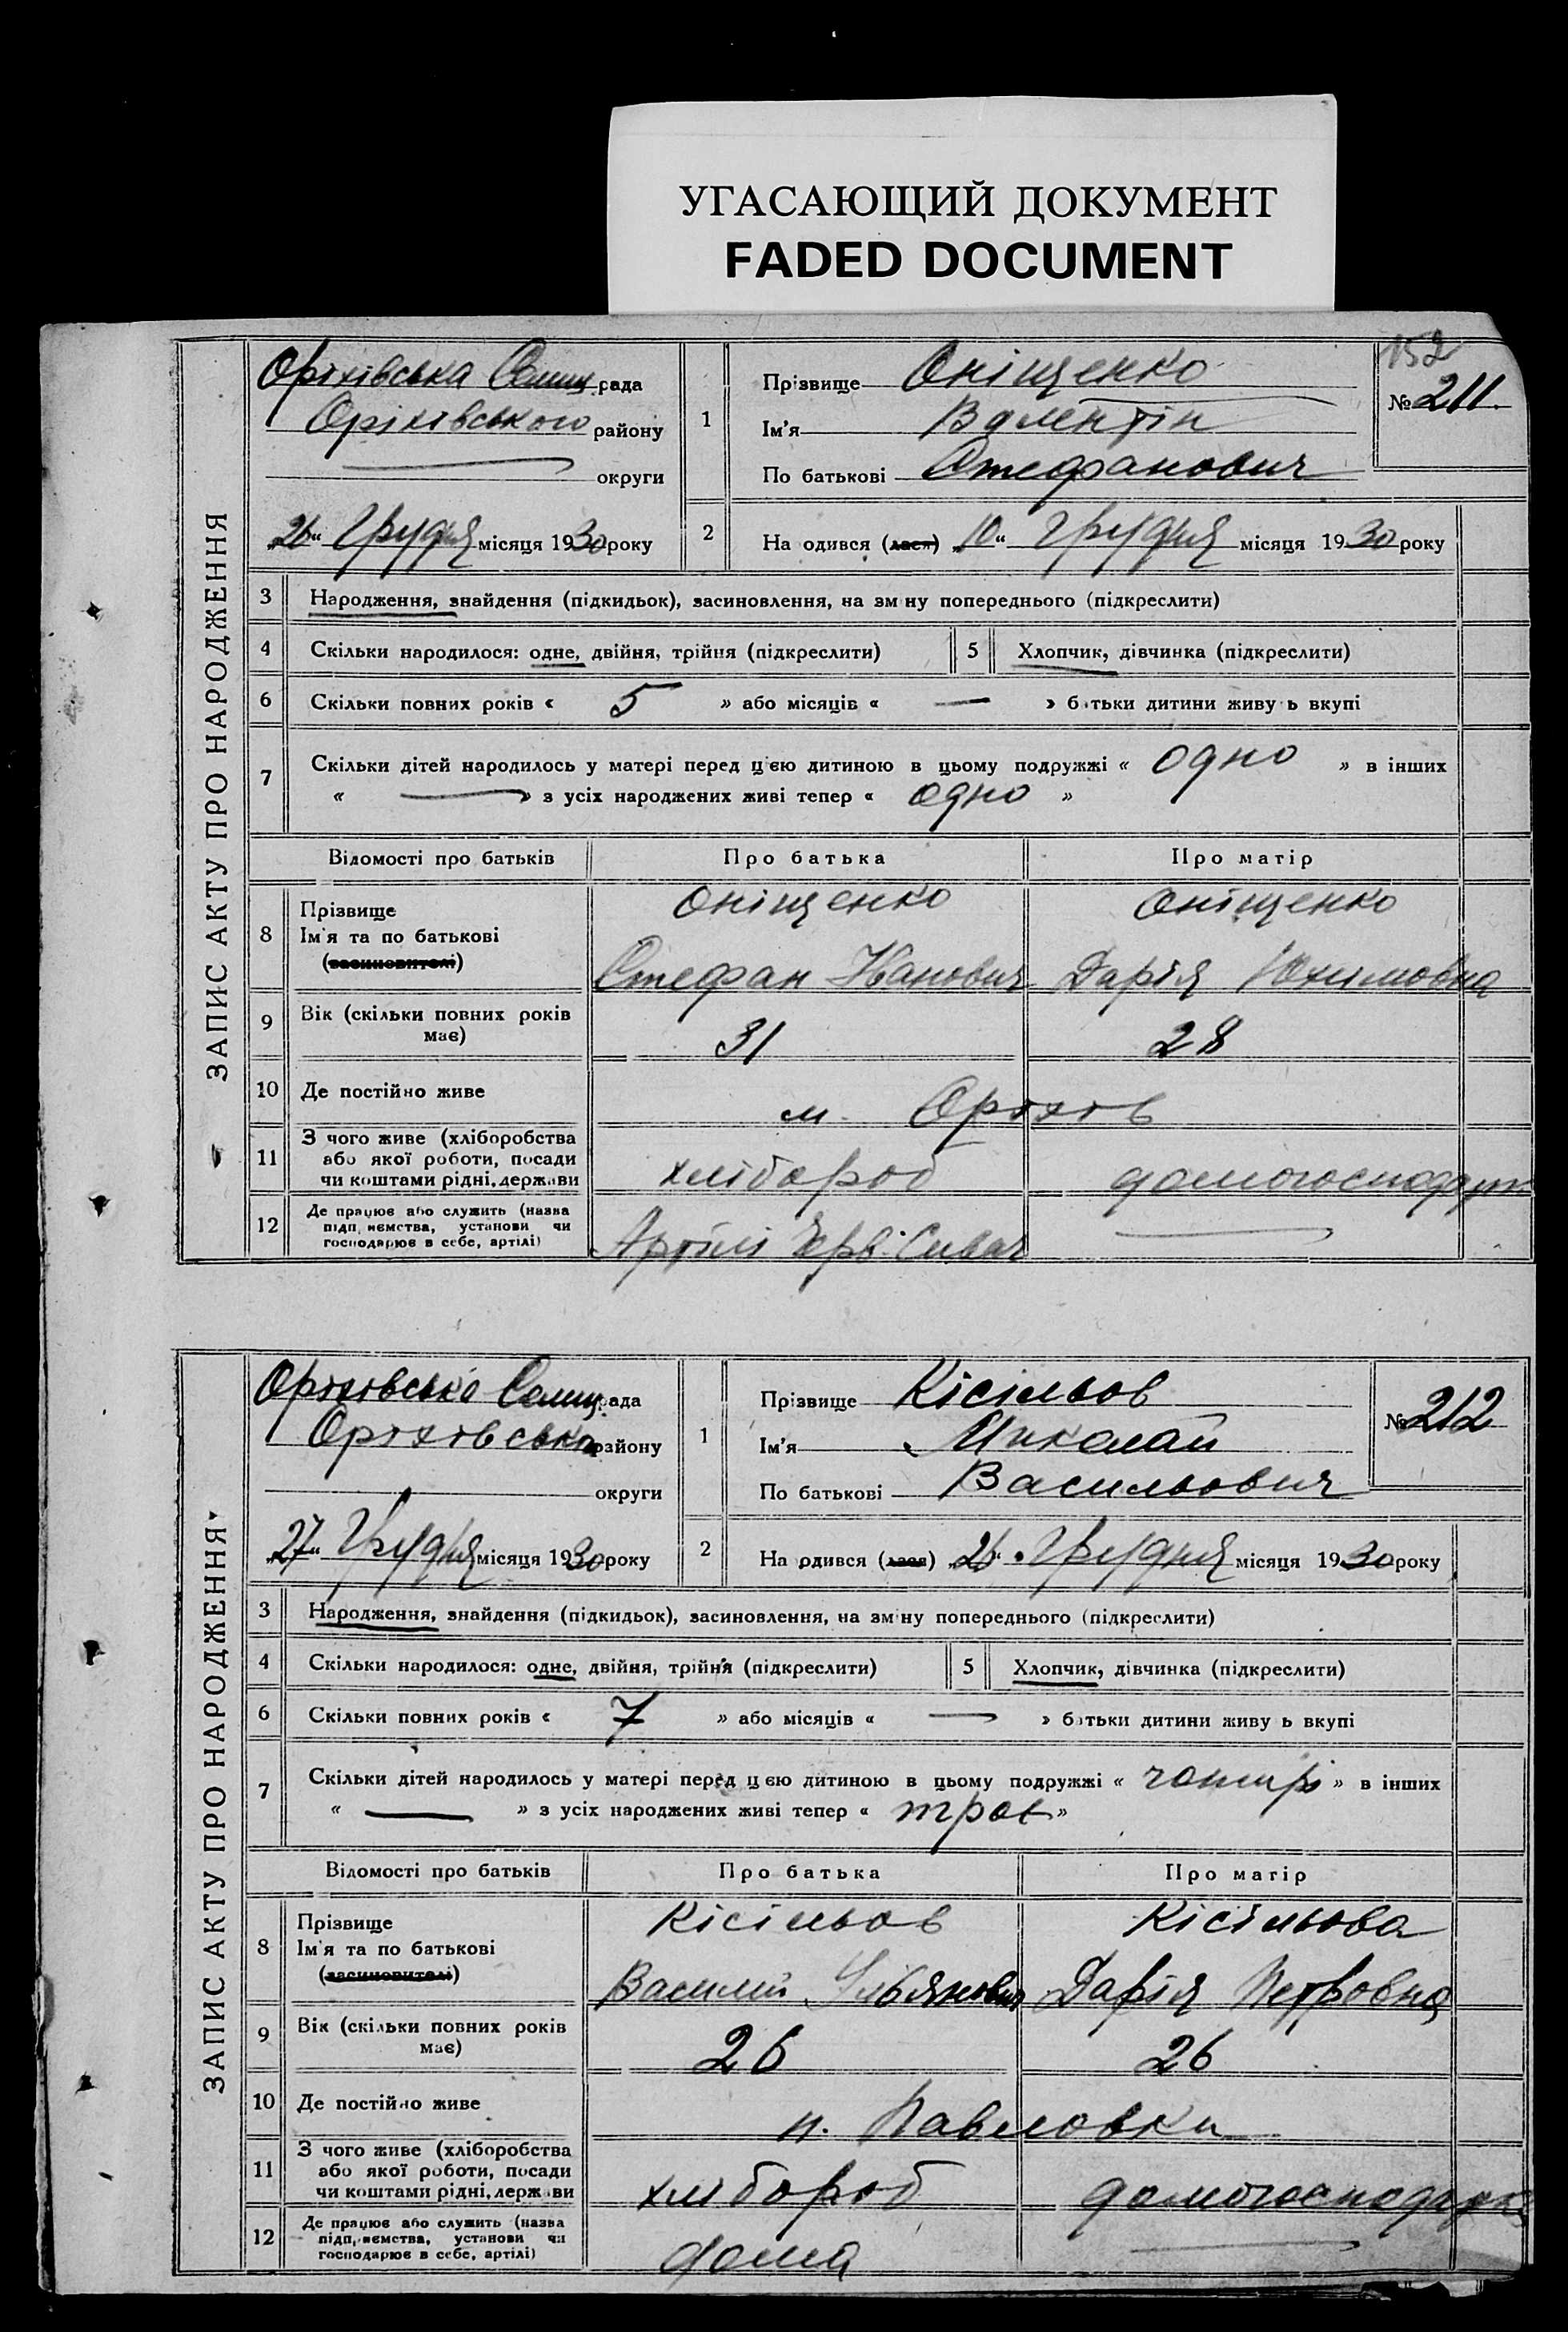 УГАСАЮЩИЙ ДОКУМЕНТ
FADED DOCUMENT
152
ЗАПИС АКТУ ПРО НАРОДЖЕННЯ
Оріхівська Селищ. рада
Оріхівського району
округи
„26“ Грудня місяця 1930 року
1
Прізвище Оніщенко
Ім'я Валентін
По батькові Стефанович
№ 211.
2
На одився (лася) „10“ Грудня місяця 1930 року
3 Народження, знайдення (підкидьок), засиновлення, на зм ну попереднього (підкреслити)
4 Скільки народилося: одне, двійня, трійня (підкреслити) 5 Хлопчик, дівчинка (підкреслити)
6 Скільки повних років « 5 » або місяців « — » б тьки дитини живу ь вкупі
7 Скільки дітей народилось у матері перед цією дитиною в цьому подружжі « одно » в інших
« — » з усіх народжених живі тепер « одно »
Відомості про батьків Про батька Про матір
8 Прізвище
Ім'я та по батькові
(засиновителі)
Оніщенко Оніщенко
Стефан Іванович Дарія Юхимовна
9 Вік (скільки повних років має) 31 28
10 Де постійно живе м. Оріхів
11 З чого живе (хліборобства
або якої роботи, посади
чи коштами рідні, держави
хлібороб домогосподарк
12 Де працює або служить (назва
підп, иємства, установи чи
господарює в себе, артілі)
Артілі Черв. Сиваш —
ЗАПИС АКТУ ПРО НАРОДЖЕННЯ
Оріхівська Селищ. рада
Оріхівська району
округи
„27“ Грудня місяця 1930 року
1
Прізвище Кісільов
Ім'я Миколай
По батькові Васильович
№ 212
2
На родився (лася) „26“ Грудня місяця 1930 року
3 Народження, знайдення (підкидьок), засиновлення, на зм ну попереднього (підкреслити)
4 Скільки народилося: одне, двійня, трійня (підкреслити) 5 Хлопчик, дівчинка (підкреслити)
6 Скільки повних років « 7 » або місяців « — » батьки дитини живу ь вкупі
7 Скільки дітей народилось у матері перед цією дитиною в цьому подружжі « чотирі » в інших
« — » з усіх народжених живі тепер « троє »
Відомості про батьків Про батька Про матір
8 Прізвище
Ім'я та по батькові
(засиновителі)
Кісільов Кісільова
Василий Ульянович Дарія Петровна
9 Вік (скільки повних років має) 26 26
10 Де постійно живе п. Павловки
11 З чого живе (хліборобства
або якої роботи, посади
чи коштами рідні, держ ви
хлібороб домогосподарка
12 Де працює або служить (назва
підп, иємства, установи чи
господарює в себе, артілі)
дома —